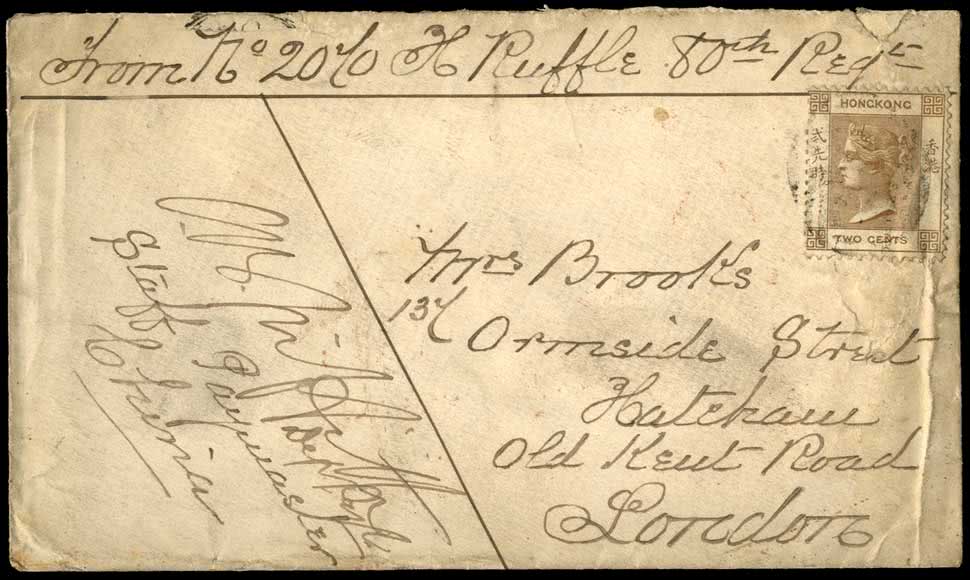 From No 2040 H Ruffle 80th Regt
HONGKONG
香港
TWO CENTS
Mrs Brooks
137
Ormside Street
Hatcham
Old Kent Road
London
Staff Paymaster
China